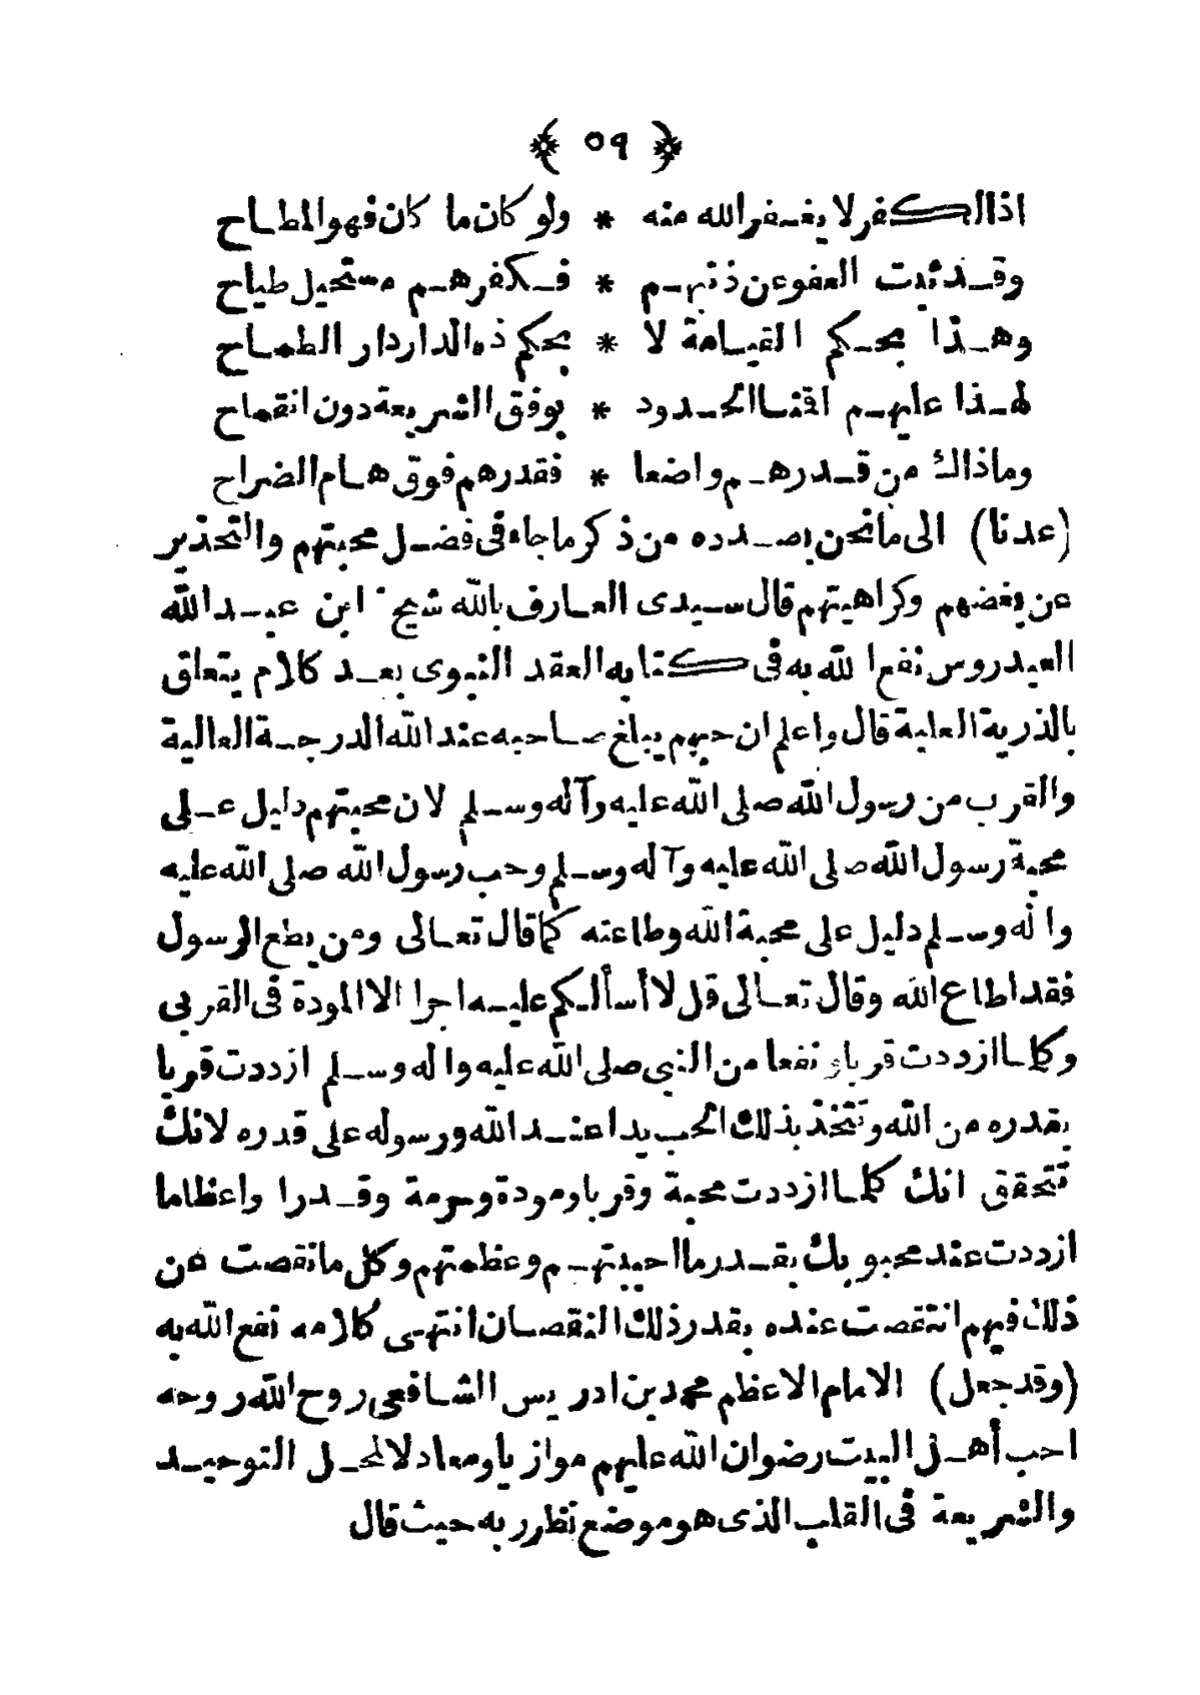 ﴿ ٥٩ ﴾
اذا الكفر لا يغفر الله منه * ولو كان ما كان فهو المطاح
وقد ثبت العفو عن ذنبهم * فكفرهم مستحيل طياح
وهذا بحكم القيامة لا * بحكم ذه الدار دار الطماح
لهذا عليهم اقمنا الحدود * بوفق الشريعة دون انقماح
وماذاك من قدرهم واضعا * فقدرهم فوق هام الضراح
(عدنا) الى ما نحن بصدده من ذكر ما جاء فى فضل محبتهم والتحذير
عن بغضهم وكراهيتهم قال سيدى العارف بالله شيخ ابن عبد الله
العيدروس نفعا لله به فى كتابه العقد النبوى بعد كلام يتعلق
بالذرية العلية قال واعلم ان حبهم يبلغ صاحبه عند الله الدرجة العالية
والقرب من رسول الله صلى الله عليه وآله وسلم لان محبتهم دليل على
محبة رسول الله صلى الله عليه وآله وسلم وحب رسول الله صلى الله عليه
واله وسلم دليل على محبة الله وطاعته كما قال تعالى ومن يطع الرسول
فقد اطاع الله وقال تعالى قل لا أسألكم عليه اجرا الا المودة فى القربى
وكلما ازددت قربا و نفعا من النبى صلى الله عليه واله وسلم ازددت قربا
بقدره من الله وتتخذ بذلك الحب يدا عند الله ورسوله على قدره لانك
تتحقق انك كلما ازددت محبة وقربا ومودة وحرمة وقدرا واعظاما
ازددت عند محبوبك بقدر ما احببتهم وعظمتهم وكل ما نقصت عن
ذلك فيهم انتقصت عنده بقدر ذلك النقصان انتهى كلامه نفع الله به
(وقد جعل) الامام الاعظم محمد بن ادريس الشافعى روح الله روحه
احب أهل البيت رضوان الله عليهم موازيا ومعادلا لمحل التوحيد
والشريعة فى القلب الذى هو موضع نظر ربه حيث قال